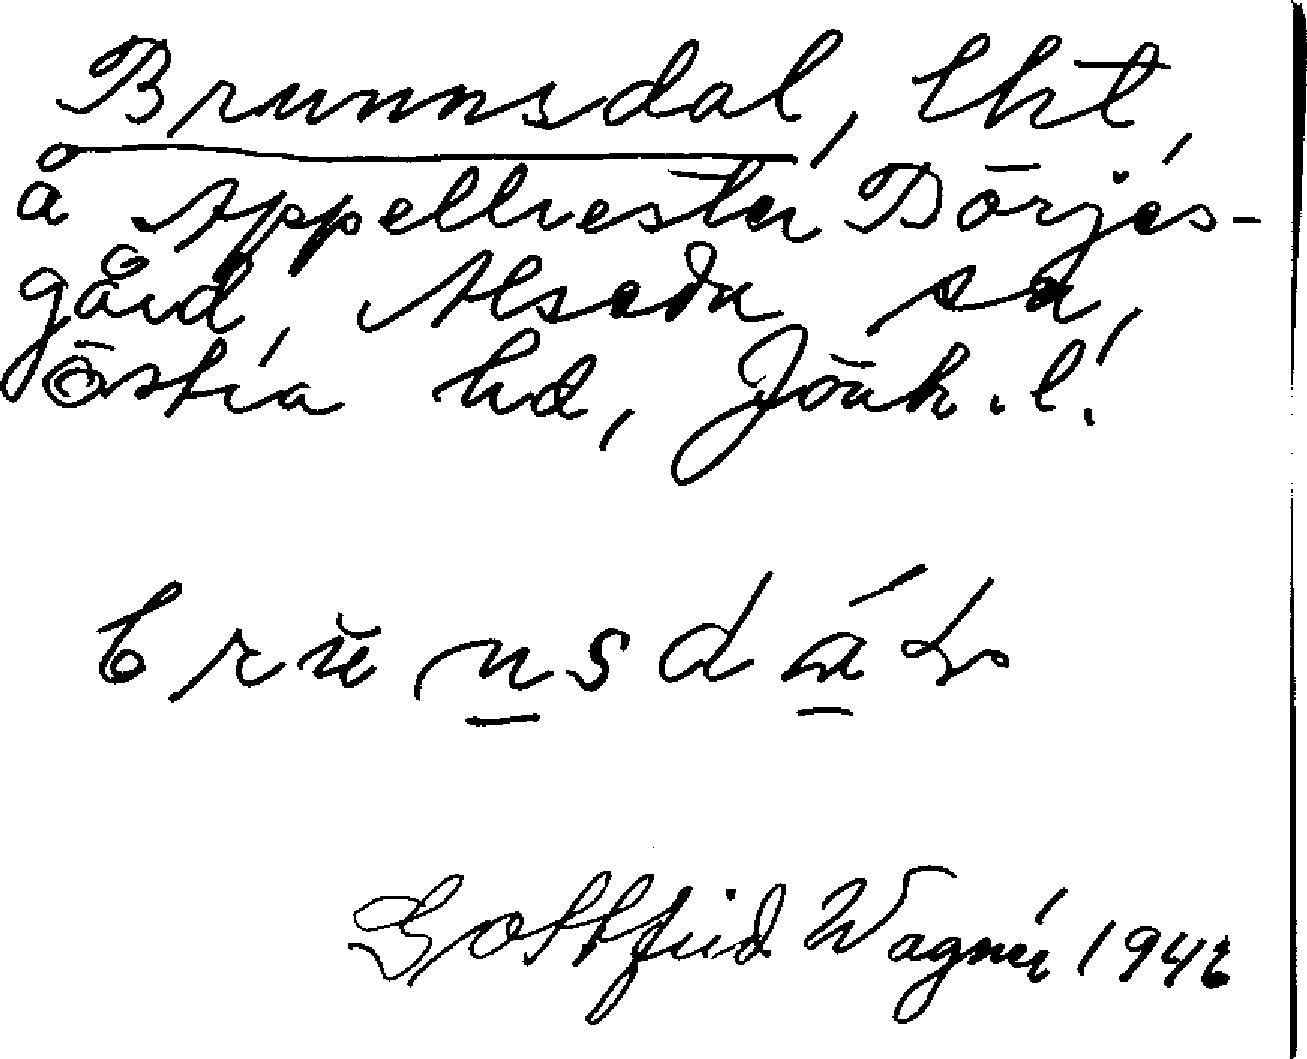 Brunnsdal, lht,
å Appelkvesta Börjes-
gård, Alseda sn,
Östra hd, Jönk. l.
brŭnsdáɫ
Gottfrid Wagnér 1946